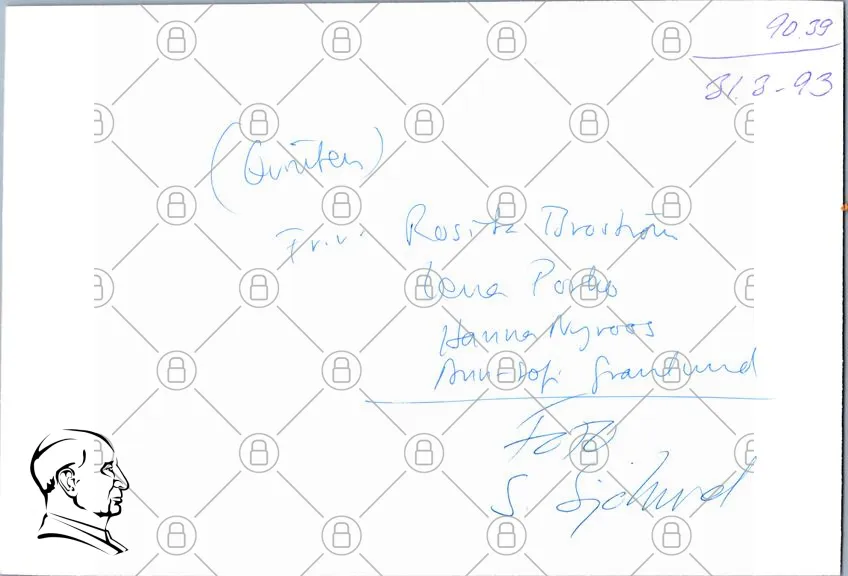 90.39
31.3-93
Fr.v. Rosita Broström
Lena Porko
Hanna Nyroos
Ann-Sofi Granlund
FOTO
S.